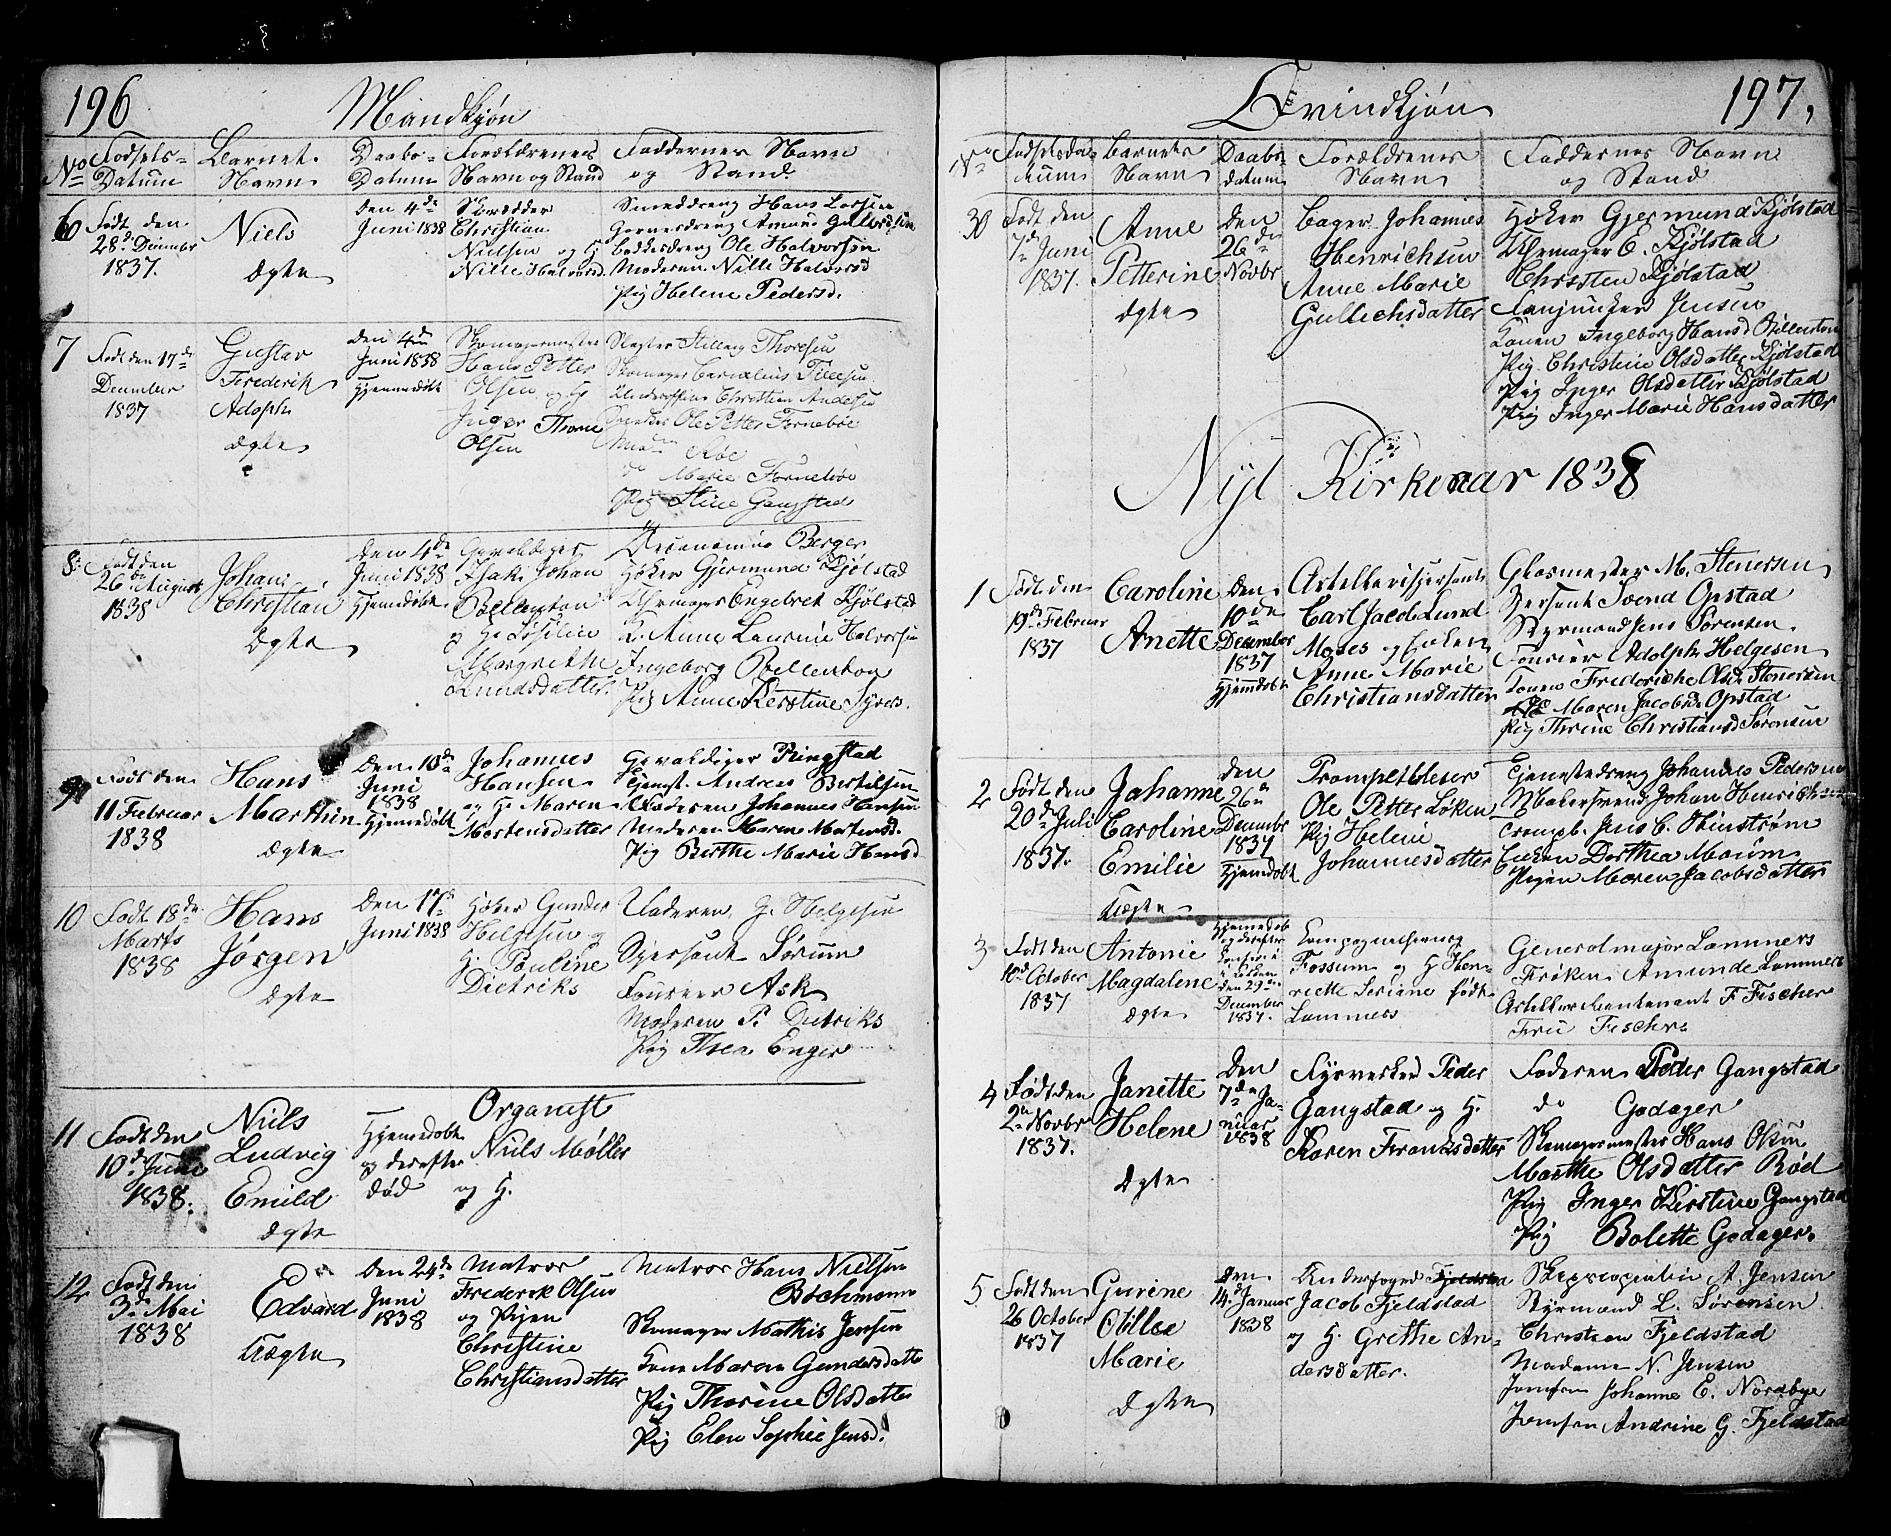 196
Mandkjøn
No
Fødsels-
Datum
Barnet.
Navn
Daabs-
Datum
Forældrenes
Navn og Stand
Faddernes Navn
og Stand
6
Født den
28de Decembr
1837.
Niels
Ægte
Den 4de
Juni 1838
Skrædder
Christian
Nielsen og H
Nille Halvorsd
Smeddreng Hans Larsen
Ole Halvorsen
Moderen Nille Halvorsd
Pig Helene Pedersd.
7
Født den 17de
December
1837
Gustav
Frederik
Adolph
Ægte
den 4de
Juni 1838
Hjemmedøbt
Skomagermester
Hans Petter
Olsen og H
Inger Thorne
Olsen
Thoresen
Skomager
Christian Andersen
Ole Petter Fornebøe
Røe
do Marie Fornebøe
Pig Stine Gangstad
8
Født den
26de August
1838
Johan
Christian
Ægte
Den 4de
Juni 1838
Hjemdøbt
Gevaldiger
Isak Johan
Bellenton
og H
Margrethe
Knudsdatter
Berger
Høker Gjermund Kjølstad
Uhrmager Engebret Kjølstad
K. Anne Laurine Halvorsen
Ingeborg Bellenton
Pig Anne Kerstine Syvers.
9
Født den
11 Februar
1838
Hans
Marthin
Ægte
Den 10de
Juni
1838
Hjemmedøbt
Johannes
Hansen
og H Maren
Mortensdatter
Gevaldiger Ringstad
Tjenest. Andreas Bertelsen
Faderen Johannes Hansen
Moderen Maren Mortensd.
Pig Berthe Marie Hansd
10
Født 18de
Marts
1838
Hans
Jørgen
Ægte
Den 17de
Juni 1838
Høker Gunder
Helgesen og
H. Pauline
Dietriks
Faderen G. Helgesen
Sersjant Sørum
Fourier Ask
Moderen P. Dietriks
Pig Thea Enger
11
Født den
10de Juni
1838.
Niels
Ludvig
Emild
Ægte
Hjemmedøbt
og derefter
død
Organist
Niels Møller
og H.
12
Født den
3de Mai
1838
Edvard
Uægte
Den 24de
Juni
1838
Matros
Frederik Olsen
og Pigen
Christine
Christiansdatter
Matros Hans Nielsen
Bochmann
Skomager Mathis Jensen
Kone Maren Gundersdatter
Pig Thorine Olsdatter
Pig Elen Sophie Jensd.
197,
Qvindkjøn
No
Fødselsda-
tum
Barnets
Navn
Daabs-
datum
Forældrenes
Navn
Faddernes Navn
og Stand
30
Født den
7de Juni
1837.
Anne
Petterine
Ægte
Den
26de
Novbr
Bager Johannes
Henrichsen
Anne Marie
Gullichsdatter
Høker Gjermund Kjølstad
Uhrmager E. Kjølstad
Christen Kjølstad
Fanjunker Jensen
Konen Ingeborg Hansd Billenton
Pig Christine Olsdatter Kjølstad
Pig Inger Olsdatter Kjølstad
Pig Inger Marie Hansdatter
Nyt Kirkeaar 1838
1
Født den
19de Februar
1837
Caroline
Anette
Den
10de
December
1837
Hjemdøbt
Carl Jacob Lund
Moses og Enken
Anne Marie
Christiansdatter
Glasmester M. Stenersen
Sersjant Svend Opstad
Styrmand Jens Sørensen.
Fourier Adolph Helgesen
Konen Frederiche Olsd. Stenersen
Maren Jacobsd. Opstad
Pig Thrine Christiansd Sørensen
2
Født den
20de Juli
1837.
Johanne
Caroline
Emilie
Uægte
Den
26de
Decembr
1837
Hjemdøbt
Trompetblæser
Ole Petter Løken
Pig Helene
Johannesdatter
Tjenestedreng Johannes Pedersen
Malersvend Johan Henrichsen
Trompb. Jens C. Hinstrøm
Enken Dorthea Maum
Pigen Maren Jacobsdatter
3
Født den
10de October
1837
Antonie
Magdalene
Ægte
Hjemmedøbt
og derefter
den 29de
December
1837.
Fossum og H Hen-
riette Seriane født
Lammers
Generalmajor Lammers
Frøken Amunde Lammers
Artellerieleutenant F Fischer
Frue Fischer
4
Født den
2de Novbr
1837.
Janette
Helene
Ægte
Den
7de Ja-
nuar
1838
Fyrverker Peder
Gangstad og H.
Karen Franksdatter
Faderen Peder Gangstad
do Godager
Skomagermester Hans Olsen
Marthe Olsdatter Rød
Pig Inger Kirstine Gangstad
Pig Bolette Godager.
5
Født den
26 October
1837
Gurine
Otillie
Marie
Ægte
Den
14de Januar
1838
Underfoged Fjeldstad
Jacob Fjeldstad
og H. Grethe An-
dersdatter.
A. Jensen
Styrmand L. Sørensen
Christian Fjeldstad
Madame N. Jensen
Jomfru Johanne E. Nordbye
Jomfru Andrine G. Fjeldstad